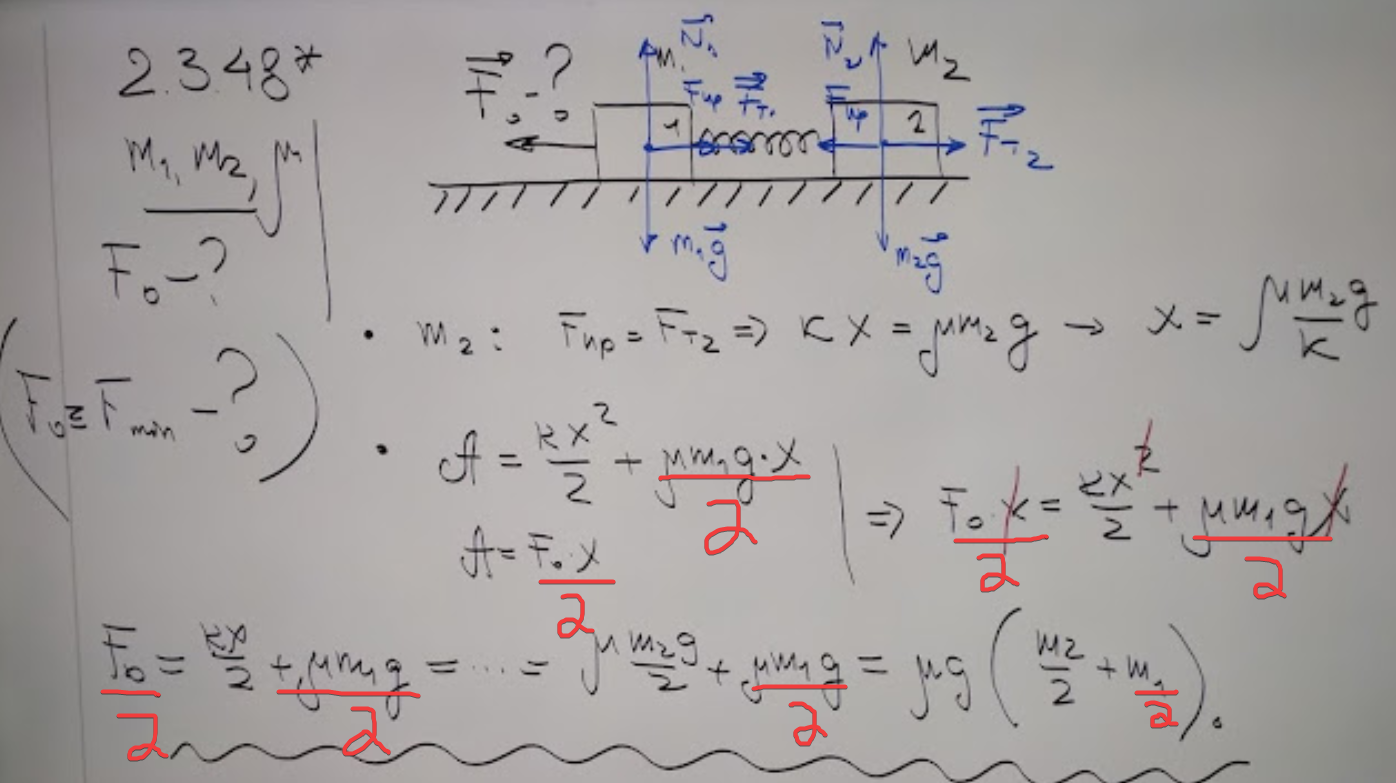 2.3.48*
m₁, m₂, μ
F₀ - ?
(F₀ ≡ Fmin - ?)
F₀ - ? m₁ N₁ N₂ m₂
Fup FT₁ Fup FT₂
1 2
m₁g m₂g
• m₂: Fup = FT₂ => kx = μm₂g → x = μm₂g/k
• A = kx²/2 + μm₁g·x/2
A = F₀·x/2
=> F₀·x/2 = kx²/2 + μm₁gx/2
F₀/2 = kx/2 + μm₁g/2 = ... = μm₂g/2 + μm₁g/2 = μg(m₂/2 + m₁/2).